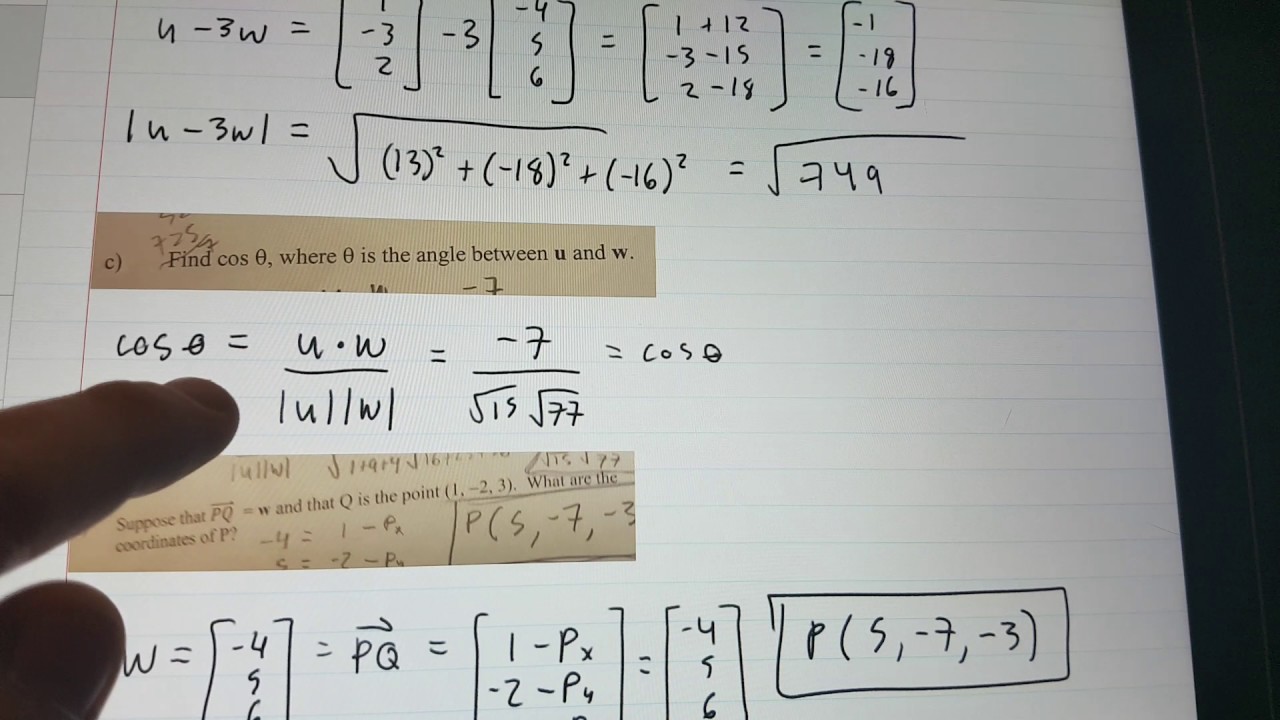 u - 3w = [1 -3 2] - 3 [-4 5 6] = [1 + 12 -3 - 15 2 - 18] = [-1 -18 -16]
|u - 3w| = √(13)² + (-18)² + (-16)² = √749
c) Find cos θ, where θ is the angle between u and w.
-7
cos θ = u · w / |u||w| = -7 / √15 √77 = cos θ
|u||w| √1+9+4 √16+ √15 √77
Suppose that PQ = w and that Q is the point (1, −2, 3). What are the
coordinates of P? -4 = 1 - Px P(5, -7, -3
5 = -2 - Py
w = [-4 5 6] = PQ = [1 - Px -2 - Py] = [-4 5 6] P(5, -7, -3)